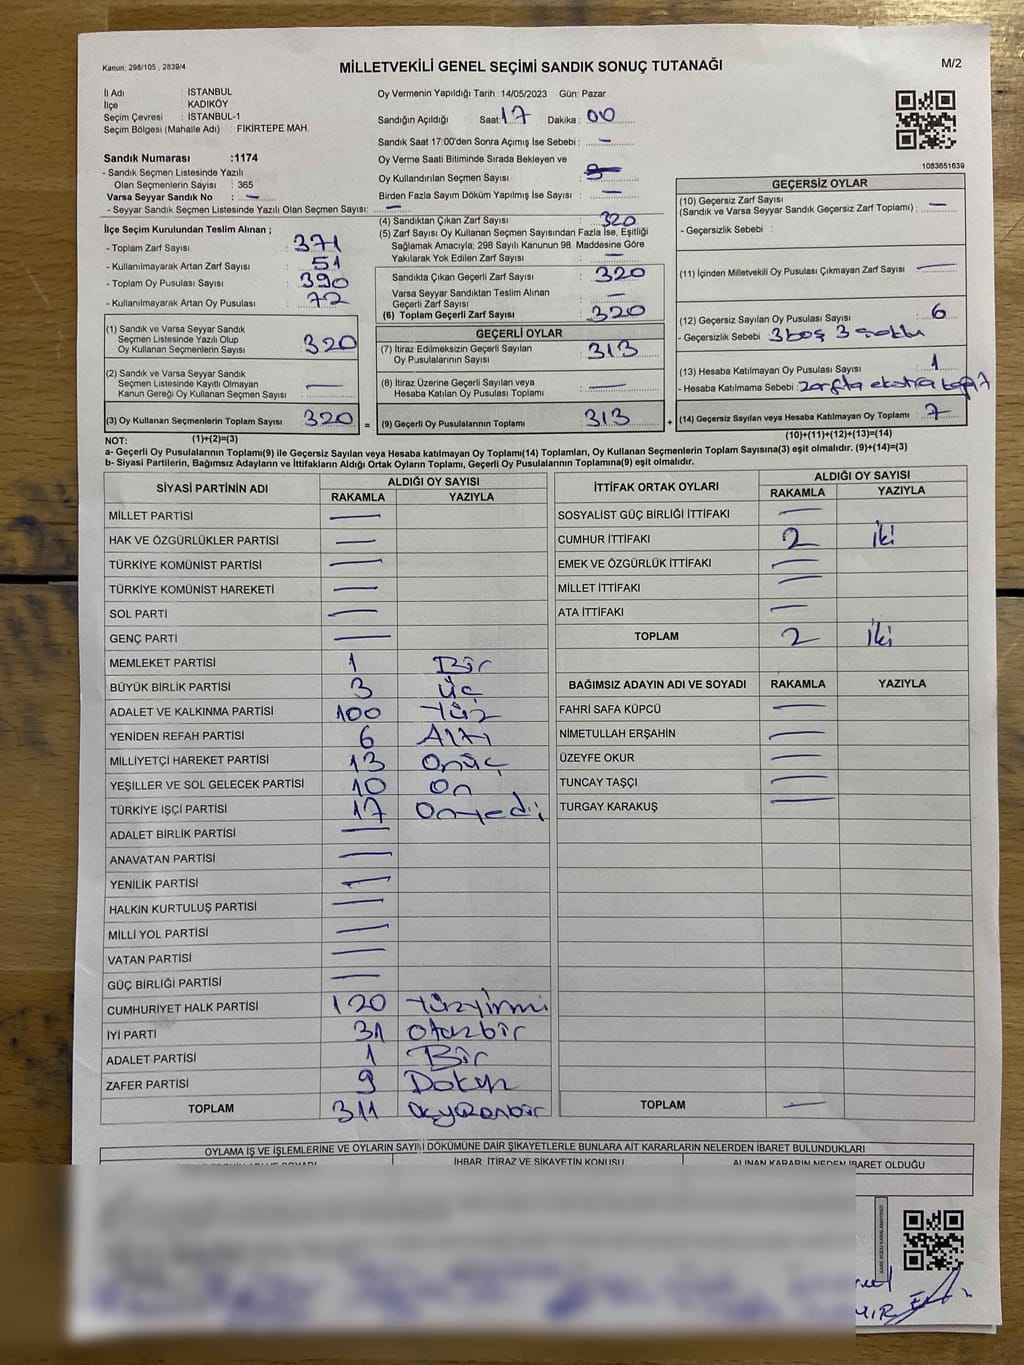 Kanun; 298/105 , 2839/4
MİLLETVEKİLİ GENEL SEÇİMİ SANDIK SONUÇ TUTANAĞI
M/2
İl Adı : İSTANBUL
İlçe : KADIKÖY
Seçim Çevresi : İSTANBUL-1
Seçim Bölgesi (Mahalle Adı) : FİKİRTEPE MAH.
Sandık Numarası :1174
- Sandık Seçmen Listesinde Yazılı
Olan Seçmenlerin Sayısı : 365
Varsa Seyyar Sandık No : —
- Seyyar Sandık Seçmen Listesinde Yazılı Olan Seçmen Sayısı: —
İlçe Seçim Kurulundan Teslim Alınan ;
- Toplam Zarf Sayısı : 371
- Kullanılmayarak Artan Zarf Sayısı : 51
- Toplam Oy Pusulası Sayısı : 390
- Kullanılmayarak Artan Oy Pusulası : 72
(1) Sandık ve Varsa Seyyar Sandık
Seçmen Listesinde Yazılı Olup
Oy Kullanan Seçmenlerin Sayısı : 320
(2) Sandık ve Varsa Seyyar Sandık
Seçmen Listesinde Kayıtlı Olmayan
Kanun Gereği Oy Kullanan Seçmen Sayısı : —
(3) Oy Kullanan Seçmenlerin Toplam Sayısı : 320
(1)+(2)=(3)
Oy Vermenin Yapıldığı Tarih : 14/05/2023 Gün: Pazar
Sandığın Açıldığı Saat: 17 Dakika : 00
Sandık Saat 17:00'den Sonra Açımış İse Sebebi : —
Oy Verme Saati Bitiminde Sırada Bekleyen ve
Oy Kullandırılan Seçmen Sayısı :
Birden Fazla Sayım Döküm Yapılmış İse Sayısı : —
(4) Sandıktan Çıkan Zarf Sayısı : 320
(5) Zarf Sayısı Oy Kullanan Seçmen Sayısından Fazla İse, Eşitliği
Sağlamak Amacıyla; 298 Sayılı Kanunun 98. Maddesine Göre
Yakılarak Yok Edilen Zarf Sayısı : —
Sandıkta Çıkan Geçerli Zarf Sayısı : 320
Varsa Seyyar Sandıktan Teslim Alınan
Geçerli Zarf Sayısı : —
(6) Toplam Geçerli Zarf Sayısı : 320
GEÇERLİ OYLAR
(7) İtiraz Edilmeksizin Geçerli Sayılan
Oy Pusulalarının Sayısı : 313
(8) İtiraz Üzerine Geçerli Sayılan veya
Hesaba Katılan Oy Pusulası Toplamı : —
= (9) Geçerli Oy Pusulalarının Toplamı : 313 +
1083651639
GEÇERSİZ OYLAR
(10) Geçersiz Zarf Sayısı
(Sandık ve Varsa Seyyar Sandık Geçersiz Zarf Toplamı) : —
- Geçersizlik Sebebi :
(11) İçinden Milletvekili Oy Pusulası Çıkmayan Zarf Sayısı : —
(12) Geçersiz Sayılan Oy Pusulası Sayısı : 6
- Geçersizlik Sebebi : 3 boş 3
(13) Hesaba Katılmayan Oy Pusulası Sayısı : 1
- Hesaba Katılmama Sebebi : zarfta ekstra
(14) Geçersiz Sayılan veya Hesaba Katılmayan Oy Toplamı : 7
(10)+(11)+(12)+(13)=(14)
NOT:
a- Geçerli Oy Pusulalarının Toplamı(9) ile Geçersiz Sayılan veya Hesaba katılmayan Oy Toplamı(14) Toplamları, Oy Kullanan Seçmenlerin Toplam Sayısına(3) eşit olmalıdır. (9)+(14)=(3)
b- Siyasi Partilerin, Bağımsız Adayların ve İttifakların Aldığı Ortak Oyların Toplamı, Geçerli Oy Pusulalarının Toplamına(9) eşit olmalıdır.
SİYASİ PARTİNİN ADI ALDIĞI OY SAYISI
RAKAMLA YAZIYLA
MİLLET PARTİSİ —
HAK VE ÖZGÜRLÜKLER PARTİSİ —
TÜRKİYE KOMÜNİST PARTİSİ —
TÜRKİYE KOMÜNİST HAREKETİ —
SOL PARTİ —
GENÇ PARTİ —
MEMLEKET PARTİSİ 1 Bir
BÜYÜK BİRLİK PARTİSİ 3 üç
ADALET VE KALKINMA PARTİSİ 100 Yüz
YENİDEN REFAH PARTİSİ 6 Altı
MİLLİYETÇİ HAREKET PARTİSİ 13 Onüç
YEŞİLLER VE SOL GELECEK PARTİSİ 10 On
TÜRKİYE İŞÇİ PARTİSİ 17 Onyedi
ADALET BİRLİK PARTİSİ —
ANAVATAN PARTİSİ —
YENİLİK PARTİSİ —
HALKIN KURTULUŞ PARTİSİ —
MİLLİ YOL PARTİSİ —
VATAN PARTİSİ —
GÜÇ BİRLİĞİ PARTİSİ —
CUMHURİYET HALK PARTİSİ 120 Yüzyirmi
İYİ PARTİ 31 Otuzbir
ADALET PARTİSİ 1 Bir
ZAFER PARTİSİ 9 Dokuz
TOPLAM 311 Üçyüzonbir
İTTİFAK ORTAK OYLARI ALDIĞI OY SAYISI
RAKAMLA YAZIYLA
SOSYALİST GÜÇ BİRLİĞİ İTTİFAKI —
CUMHUR İTTİFAKI 2 iki
EMEK VE ÖZGÜRLÜK İTTİFAKI —
MİLLET İTTİFAKI —
ATA İTTİFAKI —
TOPLAM 2 İki
BAĞIMSIZ ADAYIN ADI VE SOYADI RAKAMLA YAZIYLA
FAHRİ SAFA KÜPCÜ —
NİMETULLAH ERŞAHİN —
ÜZEYFE OKUR —
TUNCAY TAŞÇI —
TURGAY KARAKUŞ —
TOPLAM —
OYLAMA İŞ VE İŞLEMLERİNE VE OYLARIN SAYIM DÖKÜMÜNE DAİR ŞİKAYETLERLE BUNLARA AİT KARARLARIN NELERDEN İBARET BULUNDUKLARI
İHBAR, İTİRAZ VE ŞİKAYETİN KONUSU ALINAN KARARIN NEDEN İBARET OLDUĞU